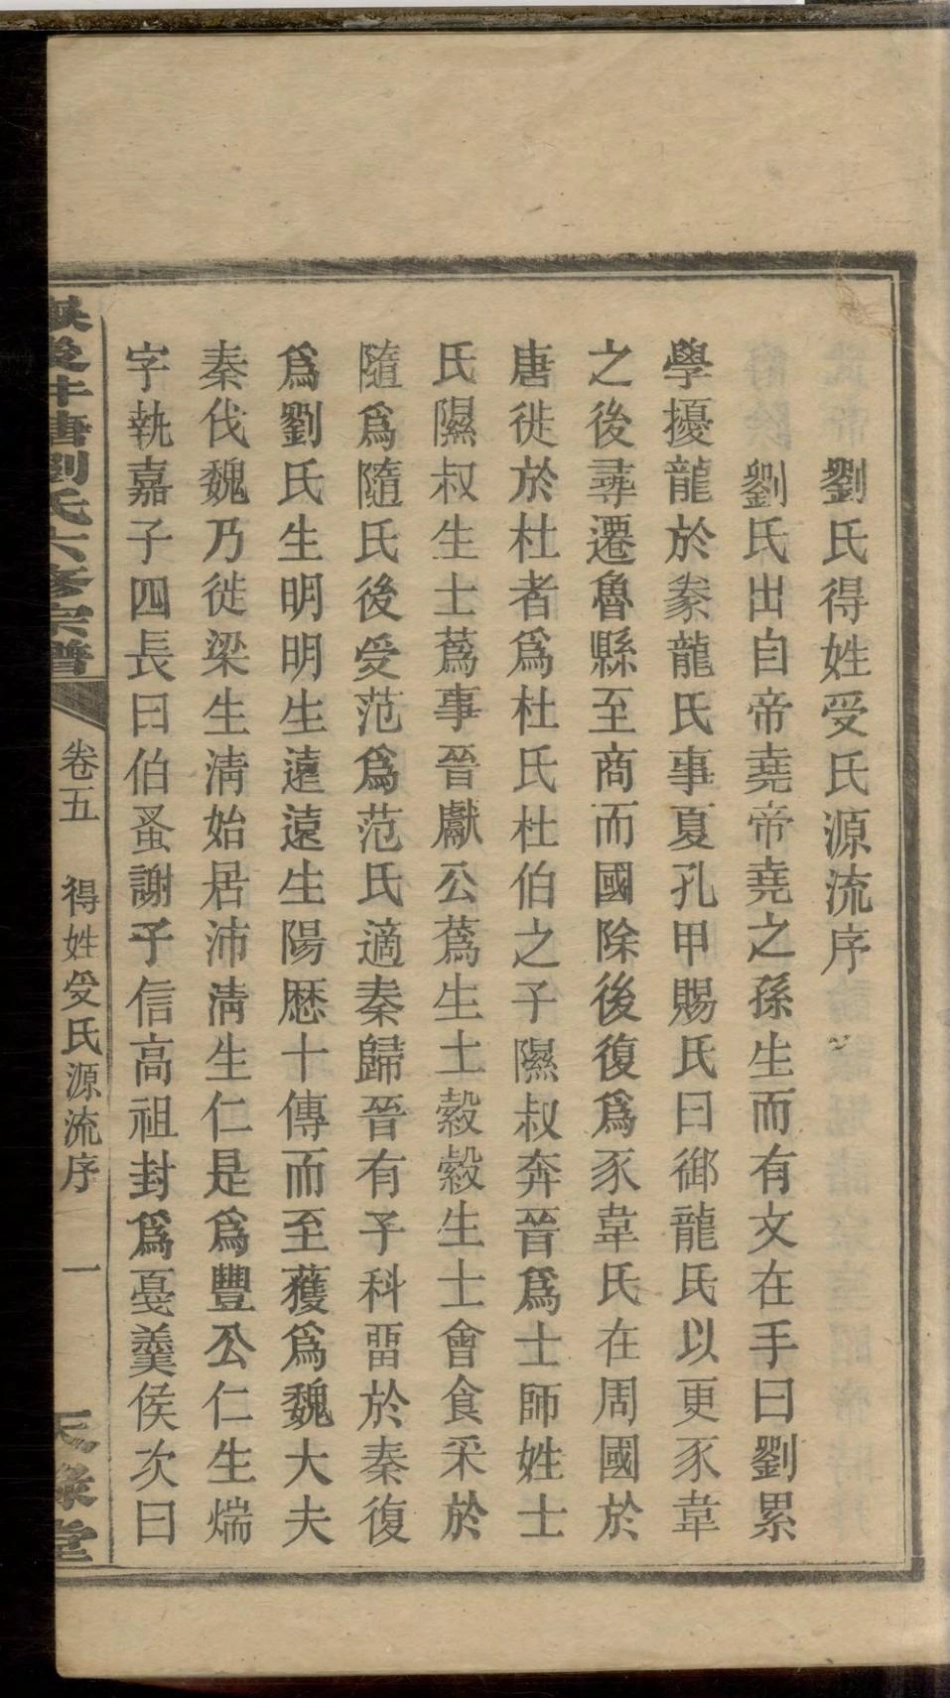 劉氏得姓受氏源流序
劉氏出自帝堯帝堯之孫生而有文在手曰劉累
學擾龍於豢龍氏事夏孔甲賜氏曰御龍氏以更豕韋
之後尋遷魯縣至商而國除後復爲豕韋氏在周國於
唐徙於杜者爲杜氏杜伯之子隰叔奔晉爲士師姓士
氏隰叔生士蔿事晉獻公蔿生士縠縠生士會食采於
隨爲隨氏後受范爲范氏適秦歸晉有子科畱於秦復
爲劉氏生明明生遠遠生陽歷十傳而至獲爲魏大夫
秦伐魏乃徙梁生淸始居沛淸生仁是爲豐公仁生煓
字執嘉子四長曰伯蚤謝予信高祖封爲戛羹侯次曰
劉氏六修宗譜
卷五 得姓受氏源流序 一
天祿堂